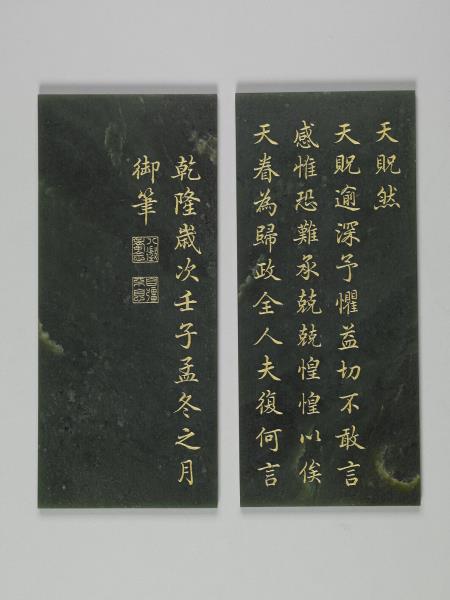 天貺然
天貺逾深予懼益切不敢言
感惟恐難承兢兢惶惶以俟
天眷為歸政全人夫復何言
乾隆歲次壬子孟冬之月
御筆
八徵耄念
自彊不息